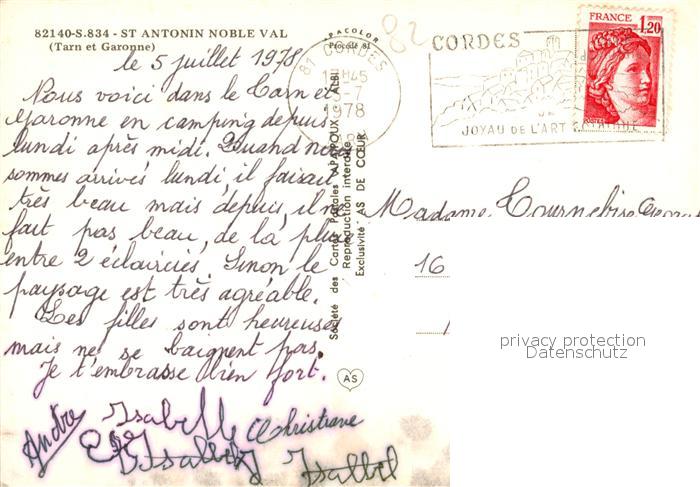 82140-S.834 - ST ANTONIN NOBLE VAL
(Tarn et Garonne)
le 5 juillet 1978
Nous voici dans le Tarn et
Garonne en camping depuis
lundi après midi. Quand nous
sommes arrivés lundi, il faisait
très beau mais depuis, il ne
fait pas beau, de la pluie
entre 2 éclaircies. Sinon le
paysage est très agréable.
Les filles sont heureuses
mais ne se baignent pas.
Je t'embrasse bien fort.
André
Isabelle
Christiane
"PACOLOR"
Procédé 81
Société des Cartes Postales APA-POUX - ALBI
Reproduction interdite
Exclusivité AS DE CŒUR
AS
82
81 CORDES
1978
CORDES
JOYAU DE L'ART
FRANCE
1,20
Madame Tournebise
16
privacy protection
Datenschutz